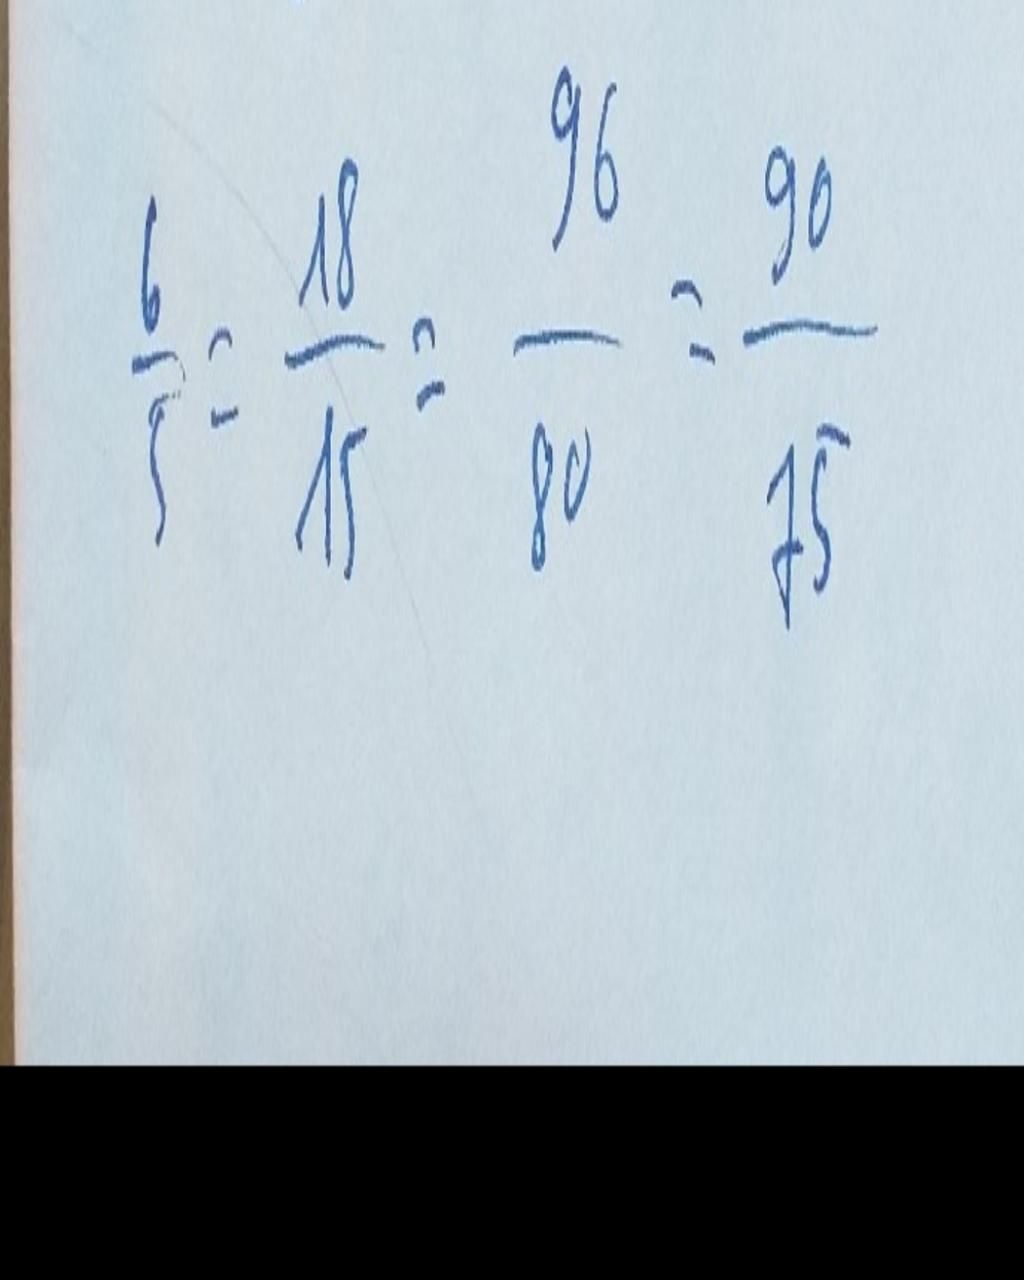 6/5 = 18/15 = 96/80 = 90/75